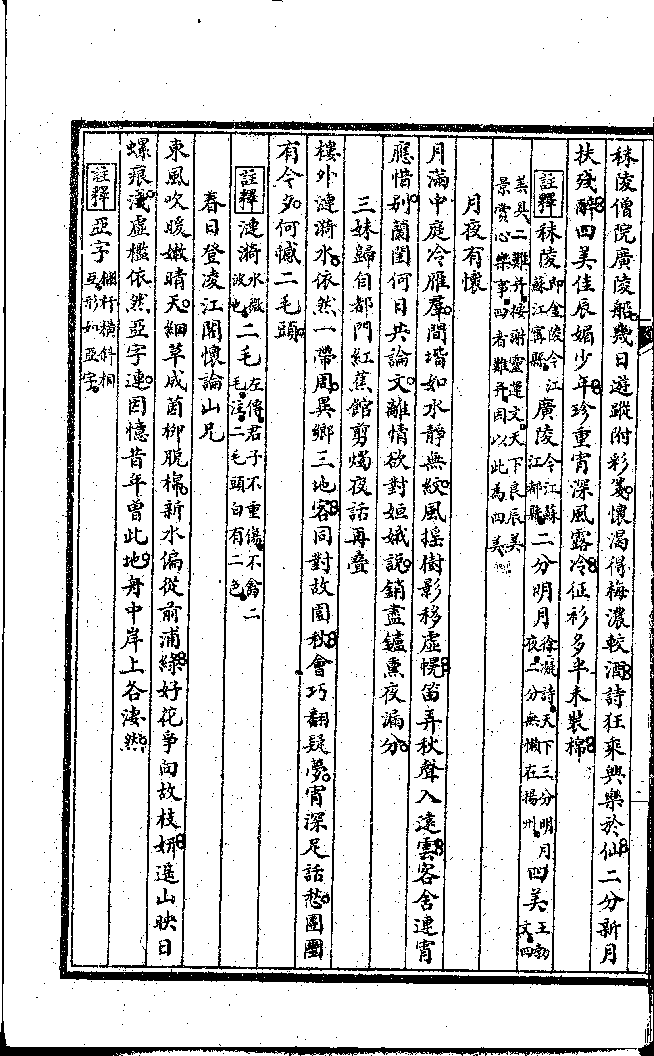 秣陵僧院廣陵船幾日遊蹤附彩箋懷渴得梅濃較酒詩狂乘興樂於仙二分新月
扶殘醉四美佳辰媚少年珍重宵深風露冷征衫多半未裝棉
註釋 秣陵即金陵今江蘇江寧縣 廣陵今江蘇江都縣 二分明月徐凝詩天下三分明月夜二分無懶在揚州 四美王勃文四
美具二難并按謝靈運文天下良辰美景賞心樂事四者難并因以此為四美
月夜有懷
月滿中庭冷雁羣間堦如水靜無紋風搖樹影移虛幌笛弄秋聲入遠雲客舍連宵
應惜别蘭閨何日共論文離情欲對姮娥說銷盡鑪熏夜漏分
三妹歸自都門紅蕉館剪燭夜話再疊
樓外漣漪水依然一帶周異鄉三地客同對故園秋會巧翻疑夢宵深足話愁團圞
有今夕何憾二毛頭
註釋 漣漪水微波也 二毛左傳君子不重傷不禽二毛注二毛頭白有二色
春日登凌江閣懷論山兄
東風吹暖嫩晴天細草成茵柳脫棉新水偏從前浦綠好花爭向故枝妍遥山映日
螺痕淺虛檻依然亞字連因憶昔年曾此地舟中岸上各淒然
註釋 亞字欄杆橫斜相互形如亞字